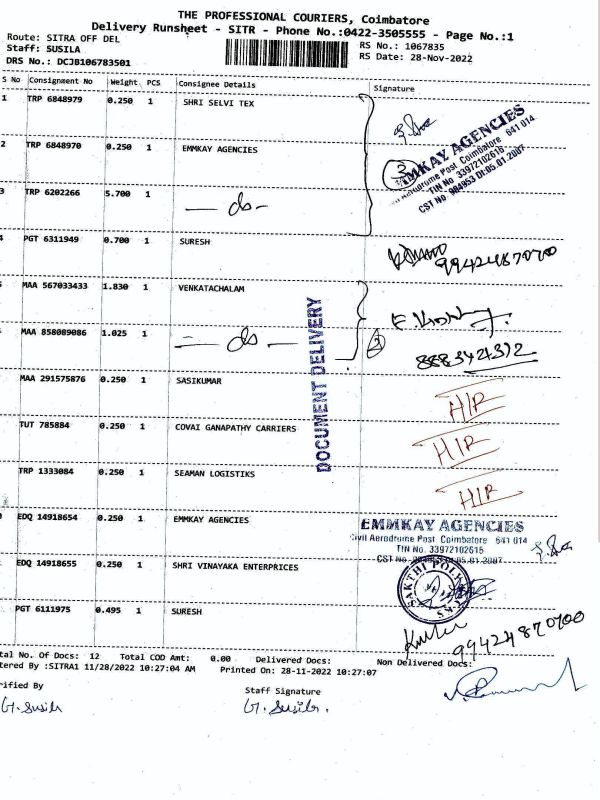 THE PROFESSIONAL COURIERS, Coimbatore
Delivery Runsheet - SITR - Phone No.:0422-3505555 - Page No.:1
Route: SITRA OFF DEL
RS No.: 1067835
Staff: SUSILA
RS Date: 28-Nov-2022
DRS No.: DCJB106783501
S No Consignment No Weight PCS Consignee Details Signature
1 TRP 6848979 0.250 1 SHRI SELVI TEX
2 TRP 6848970 0.250 1 EMMKAY AGENCIES
3 TRP 6202266 5.700 1 — do -
EMMKAY AGENCIES
Civil Aerodrome Post Coimbatore 641 014
TIN No 33972102615
CST No 984953 Dt.05.01.2007
3
4 PGT 6311949 0.700 1 SURESH
99424870700
MAA 567033433 1.830 1 VENKATACHALAM
MAA 858089086 1.025 1 — do —
2
8883421312
DOCUMENT DELIVERY
MAA 291575876 0.250 1 SASIKUMAR HIR
TUT 785884 0.250 1 COVAI GANAPATHY CARRIERS HIR
TRP 1333084 0.250 1 SEAMAN LOGISTIKS HIR
EDQ 14918654 0.250 1 EMMKAY AGENCIES
EMMKAY AGENCIES
Civil Aerodrome Post Coimbatore 641 014
TIN No. 33972102615
CST No. 984953 Dt.05.01.2007
EDQ 14918655 0.250 1 SHRI VINAYAKA ENTERPRICES
SAKTHI POLY
PGT 6111975 0.495 1 SURESH
99424870700
tal No. Of Docs: 12 Total COD Amt: 0.00 Delivered Docs: Non Delivered Docs:
tered By :SITRA1 11/28/2022 10:27:04 AM Printed On: 28-11-2022 10:27:07
rified By Staff Signature
G. Susila G. Susila.